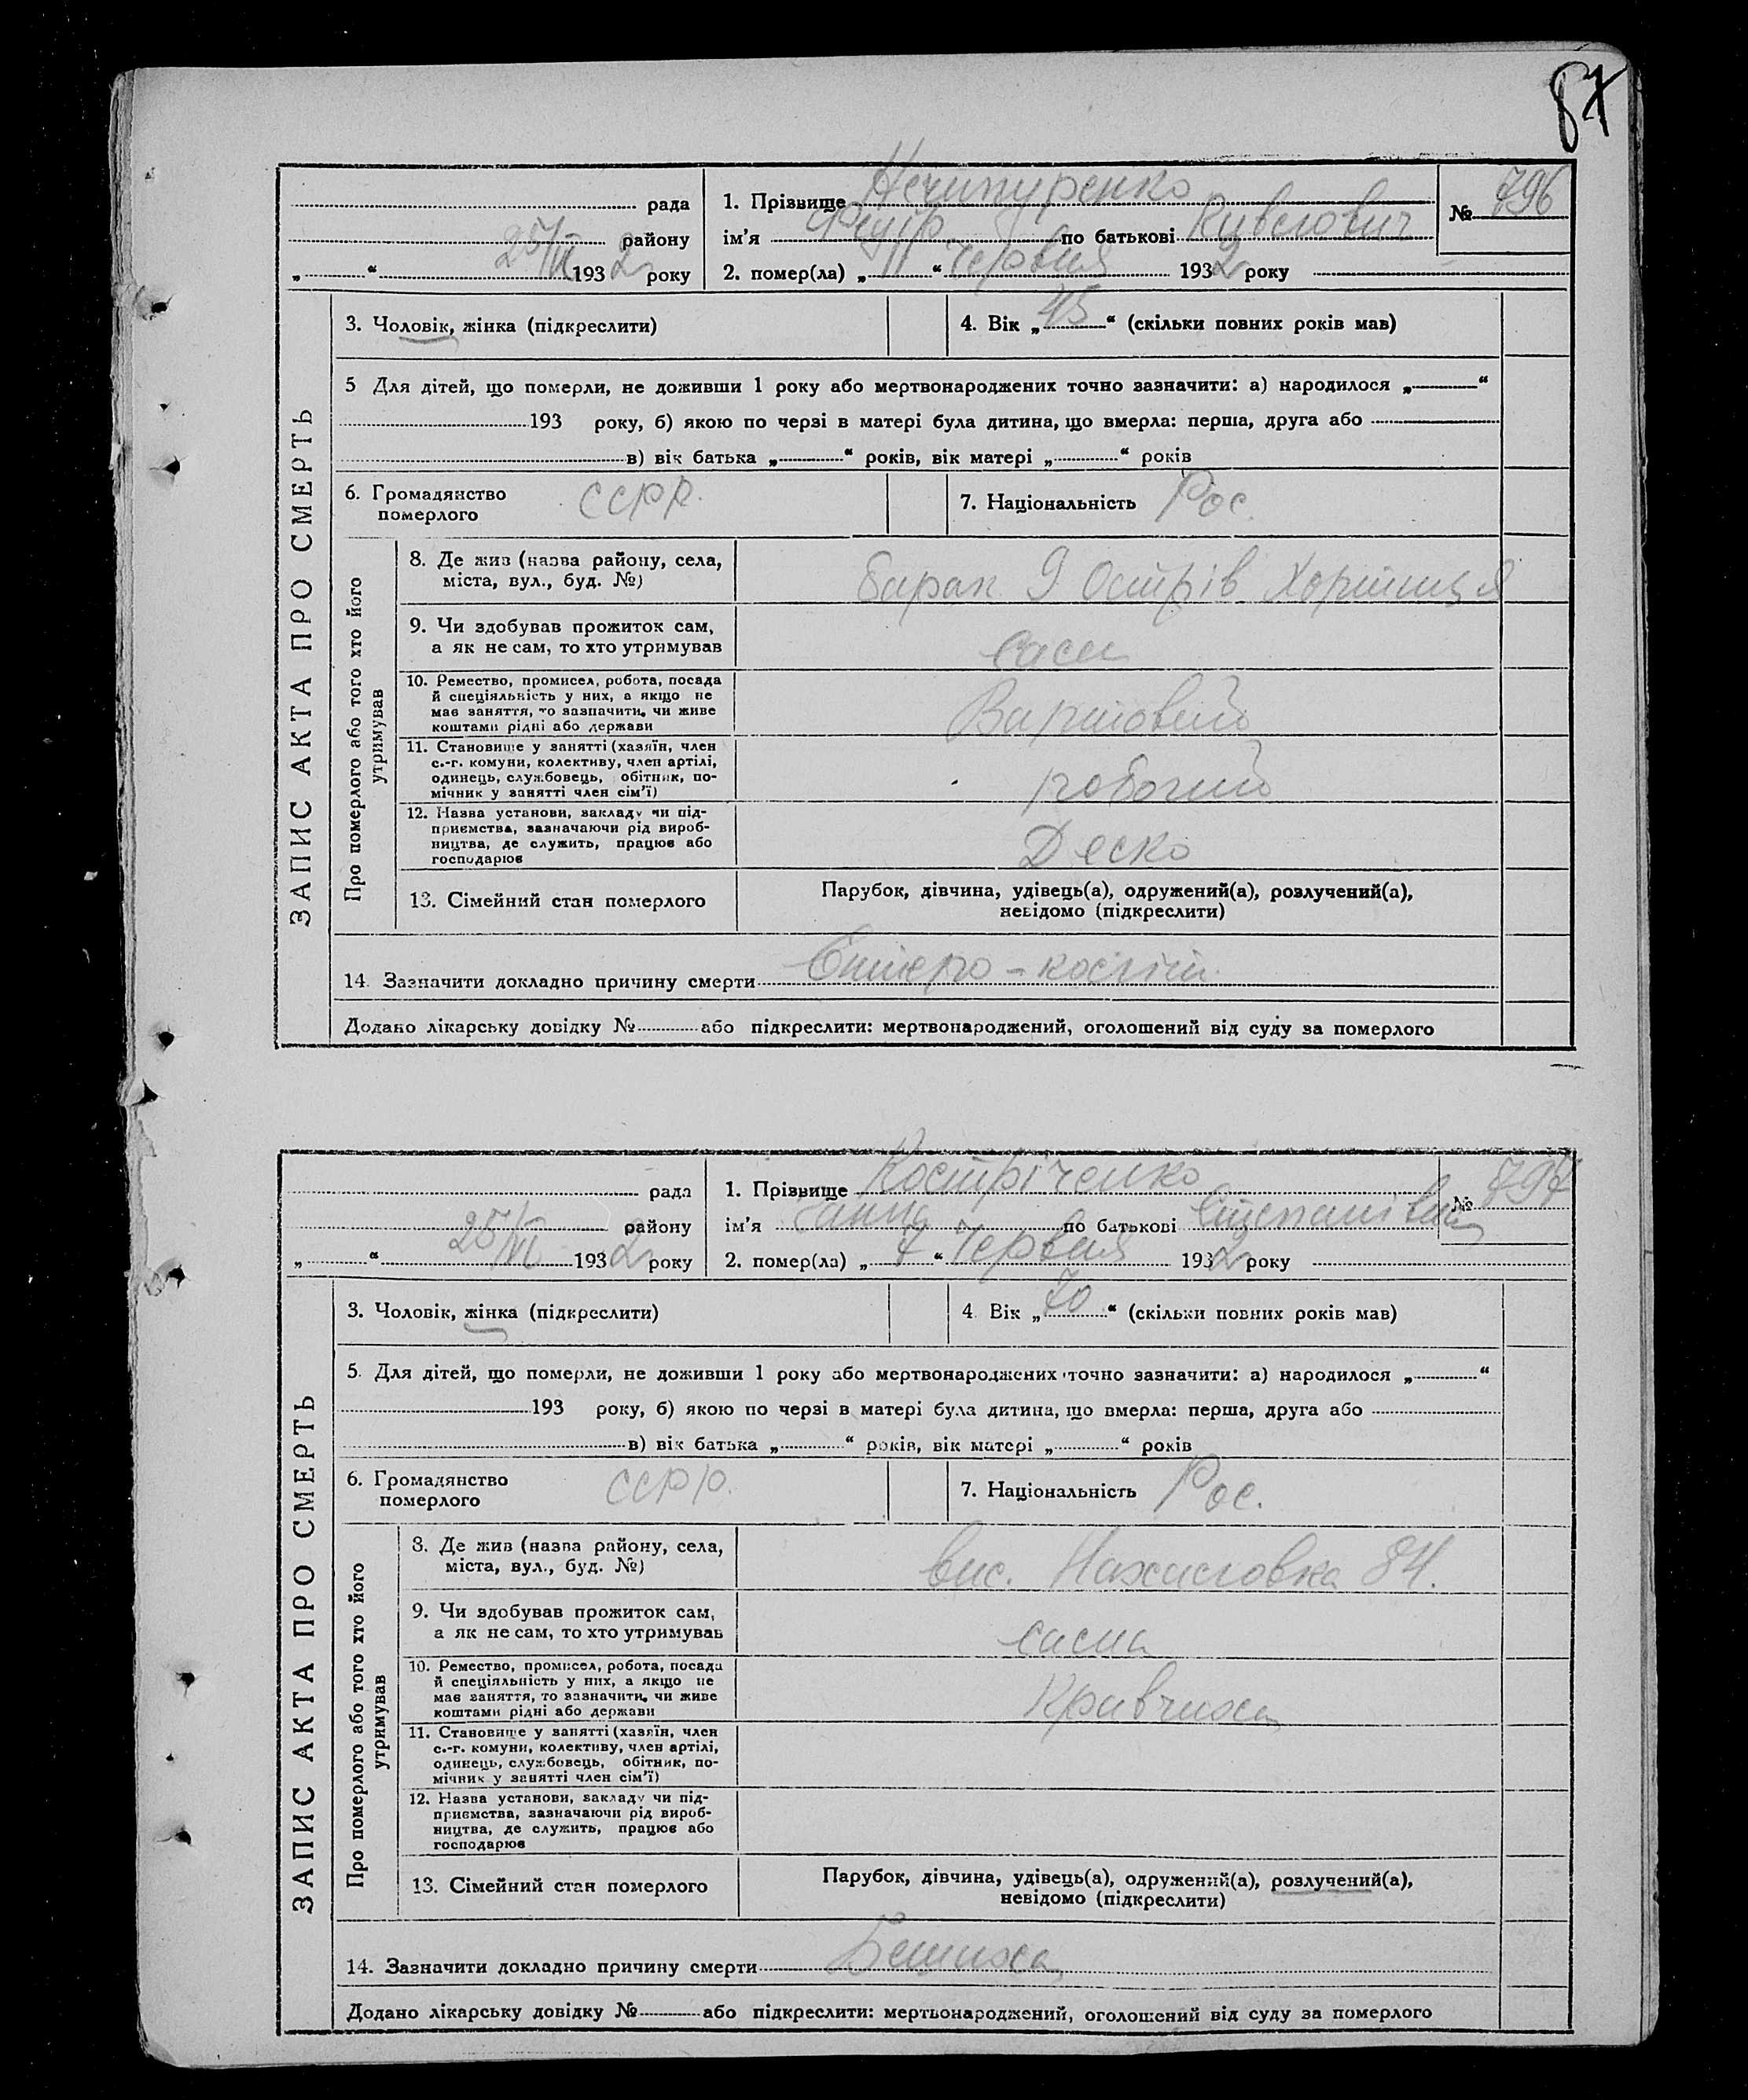 87
рада
району
25/VI
„ “ 1932 року
1. Прізвище Нечипуренко
ім’я Федір по батькові
2. помер(ла) „ 11 “ Червня 1932 року
№ 796
ЗАПИС АКТА ПРО СМЕРТЬ
3. Чоловік, жінка (підкреслити)
4. Вік „ 45 “ (скільки повних років мав)
5 Для дітей, що померли, не доживши 1 року або мертвонароджених точно зазначити: а) народилося „ “
193 року, б) якою по черзі в матері була дитина, що вмерла: перша, друга або
в) вік батька „ “ років, вік матері „ “ років
6. Громадянство
померлого
ССРР.
7. Національність Рос.
Про померлого або того хто його
утримував
8. Де жив (назва району, села,
міста, вул., буд. №)
барак 9 Острів Хортиця
9. Чи здобував прожиток сам,
а як не сам, то хто утримував
сам
10. Ремество, промисел, робота, посада
й спеціяльність у них, а якщо не
має заняття, то зазначити, чи живе
коштами рідні або держави
Вартовий
11. Становище у занятті (хазяїн, член
с.-г. комуни, колективу, член артілі,
одинець, службовець, обітник, по-
мічник у занятті член сім’ї)
робочий
12. Назва установи, закладу чи під-
приємства, зазначаючи рід вироб-
ництва, де служить, працює або
господарює
Деско
13. Сімейний стан померлого
Парубок, дівчина, удівець(а), одружений(а), розлучений(а),
невідомо (підкреслити)
14. Зазначити докладно причину смерти
Додано лікарську довідку № або підкреслити: мертвонароджений, оголошений від суду за померлого
рада
району
25/VI
„ “ 1932 року
1. Прізвище Костріченко
ім’я Ганна по батькові Степанівна
2. помер(ла) „ 7 “ Червня 1932 року
№ 797
ЗАПИС АКТА ПРО СМЕРТЬ
3. Чоловік, жінка (підкреслити)
4. Вік „ 70 “ (скільки повних років мав)
5. Для дітей, що померли, не доживши 1 року або мертвонароджених точно зазначити: а) народилося „ “
193 року, б) якою по черзі в матері була дитина, що вмерла: перша, друга або
в) вік батька „ “ років, вік матері „ “ років
6. Громадянство
померлого
ССРР.
7. Національність Рос.
Про померлого або того хто його
утримував
8. Де жив (назва району, села,
міста, вул., буд. №)
вис. Нахаловка 84.
9. Чи здобував прожиток сам,
а як не сам, то хто утримував
сама
10. Ремество, промисел, робота, посада
й спеціяльність у них, а якщо не
має заняття, то зазначити, чи живе
коштами рідні або держави
Кравчиха
11. Становище у занятті (хазяїн, член
с.-г. комуни, колективу, член артілі,
одинець, службовець, обітник, по-
мічник у занятті член сім’ї)
12. Назва установи, закладу чи під-
приємства, зазначаючи рід вироб-
ництва, де служить, працює або
господарює
13. Сімейний стан померлого
Парубок, дівчина, удівець(а), одружений(а), розлучений(а),
невідомо (підкреслити)
14. Зазначити докладно причину смерти Бешиха
Додано лікарську довідку № або підкреслити: мертвонароджений, оголошений від суду за померлого